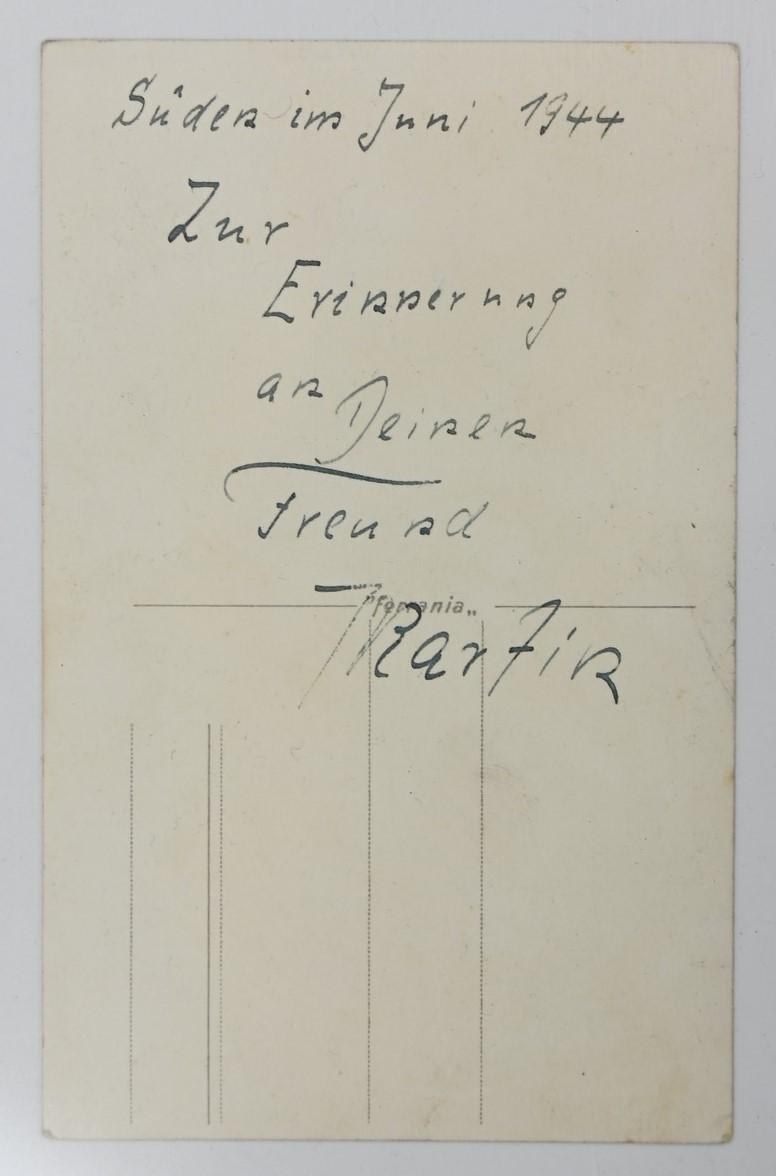 Süden im Juni 1944
Zur
Erinnerung
an Deinen
Freund
"Ferrania„
Martin